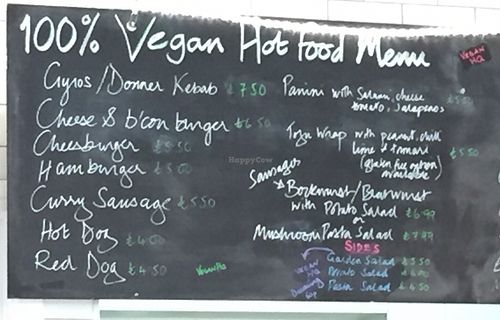 100% Vegan Hot Food Menu
VEGAN HQ
Gyros/Donner Kebab £7.50
Cheese & b'con burger £6.50
Cheesburger £5.50
Hamburger £5.00
Curry Sausage £5.50
Hot Dog £4.00
Red Dog £4.50
Panini with Salami, cheese
tomato, jalapenos £5.50
Tofu Wrap with peanut, chilli
lime & tamari £5.50
(gluten free option)
available
Sausages
Bockwurst/Bratwurst
with Potato Salad £6.99
or
Mushroom Pasta Salad £7.99
SIDES
Garden Salad £3.50
Potato Salad £4.00
Pasta Salad £4.50
VEGAN
HQ
HappyCow